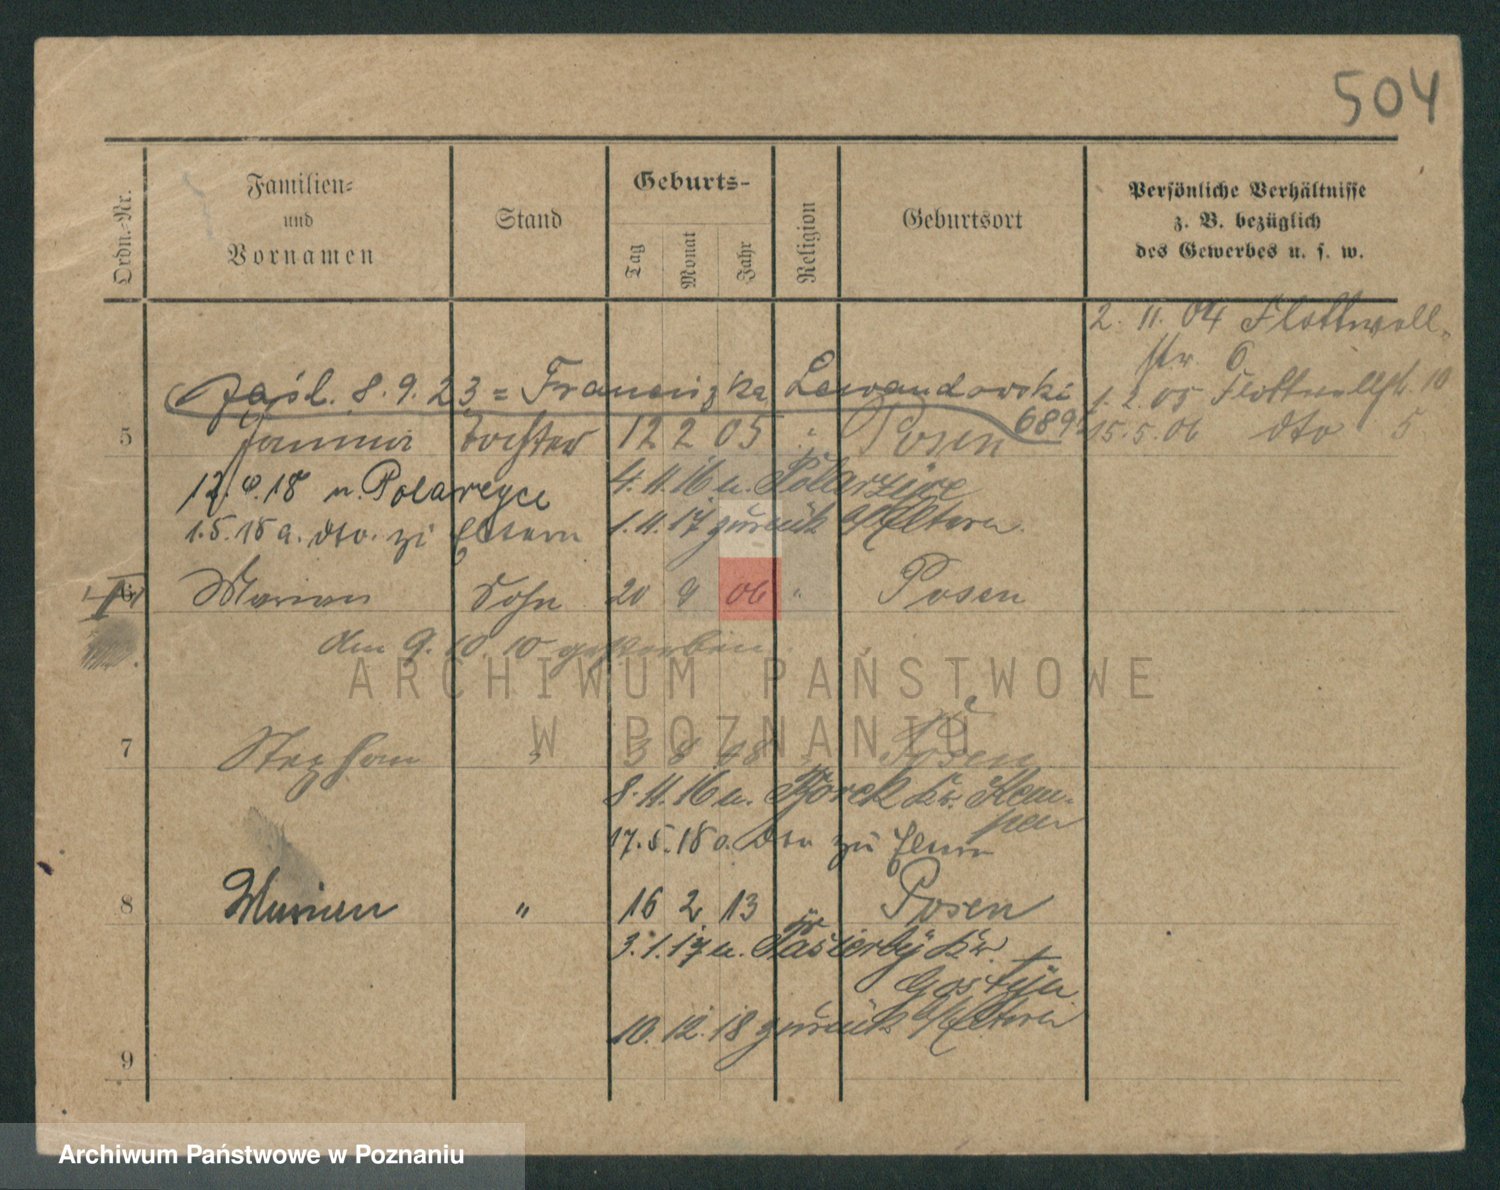 504
Ordn.-Nr.
Familien-
und
Vornamen
Stand
Geburts-
Tag
Monat
Jahr
Religion
Geburtsort
Persönliche Verhältnisse
z. B. bezüglich
des Gewerbes u. s. w.
2. 11. 04 Flottwell-
str. 6
zaśl. 8.9.23 = Franciszka Lewandowski
1. 2. 05 Flottwellst. 10
689
15. 5. 06 dto 5
5 Tochter 12 2 05 " Posen
12.9.18 n. Polareyce
4.11.16 n.
1.5.18 a. dto. zu Eltern
1.11.17 zurück Eltern
6 Marian Sohn 20 9 06 " Posen
den 9. 10. 10 gestorben.
7 Stephan " 3 8 08 " Posen
8.11.16 n. Kr. Kem-
pen
17.5.18 a. dto zu Eltern
8 Marian " 16 2 13 Posen
3.1.17 n. Pasierby Kr.
Gostyn
10.12.18 zurück Eltern
9
ARCHIWUM PAŃSTWOWE
W POZNANIU
Archiwum Państwowe w Poznaniu